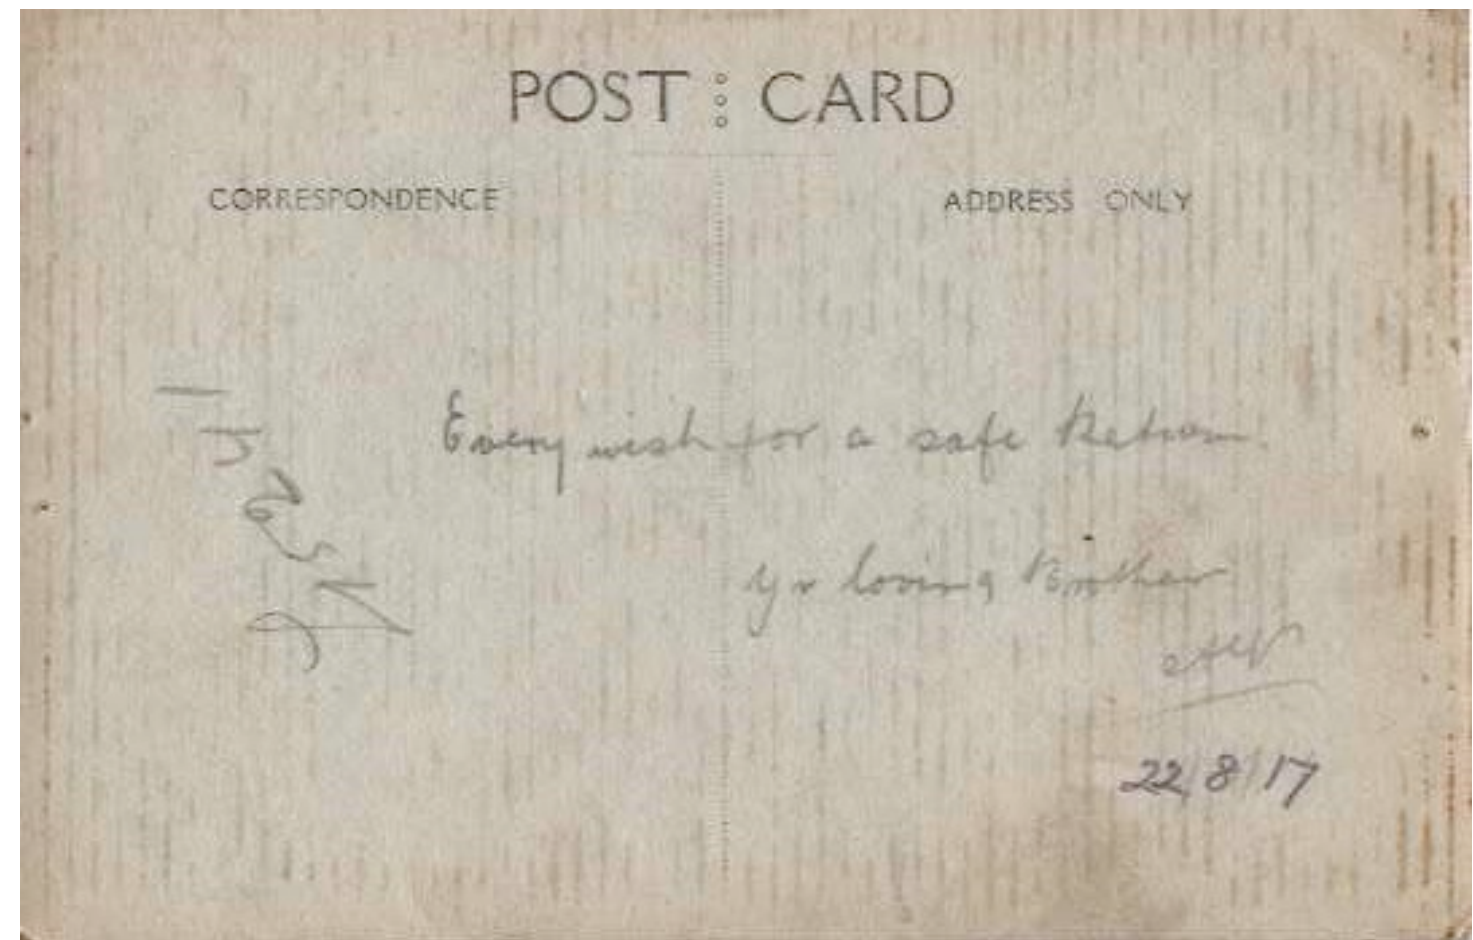 POST CARD
CORRESPONDENCE ADDRESS ONLY
Every wish for a safe Return.
Yr loving Brother
22/8/17